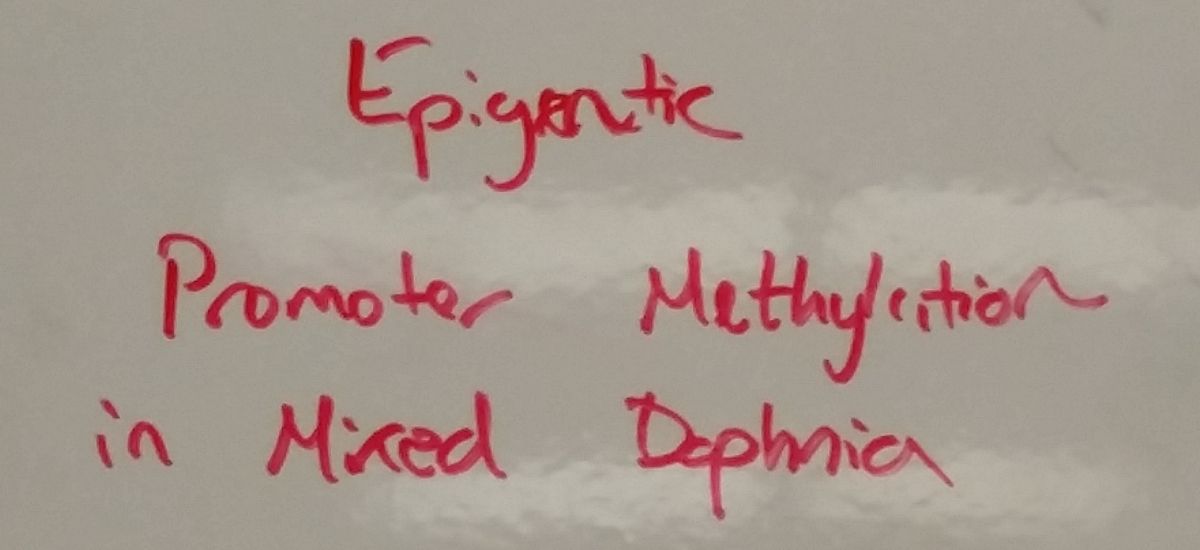 Epigentic
Promoter Methylation
in Mixed Daphnia